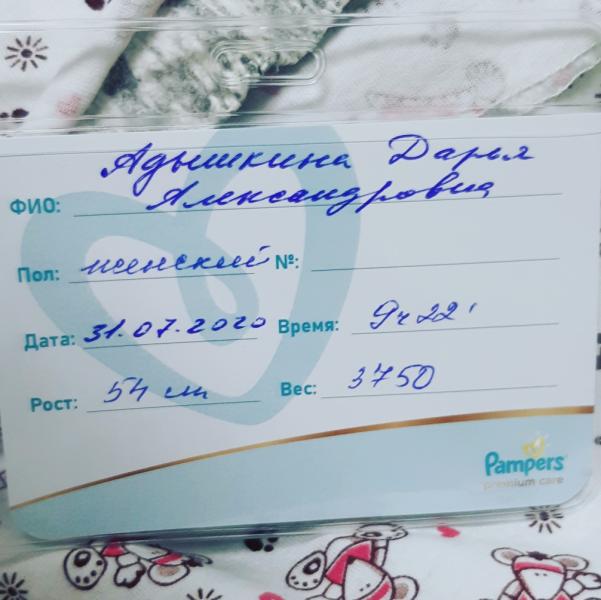 Адышкина Дарья
ФИО: Александровна
Пол: женский №:
Дата: 31.07.2020 Время: 9ч 22'
Рост: 54 см Вес: 3750
Pampers
premium care